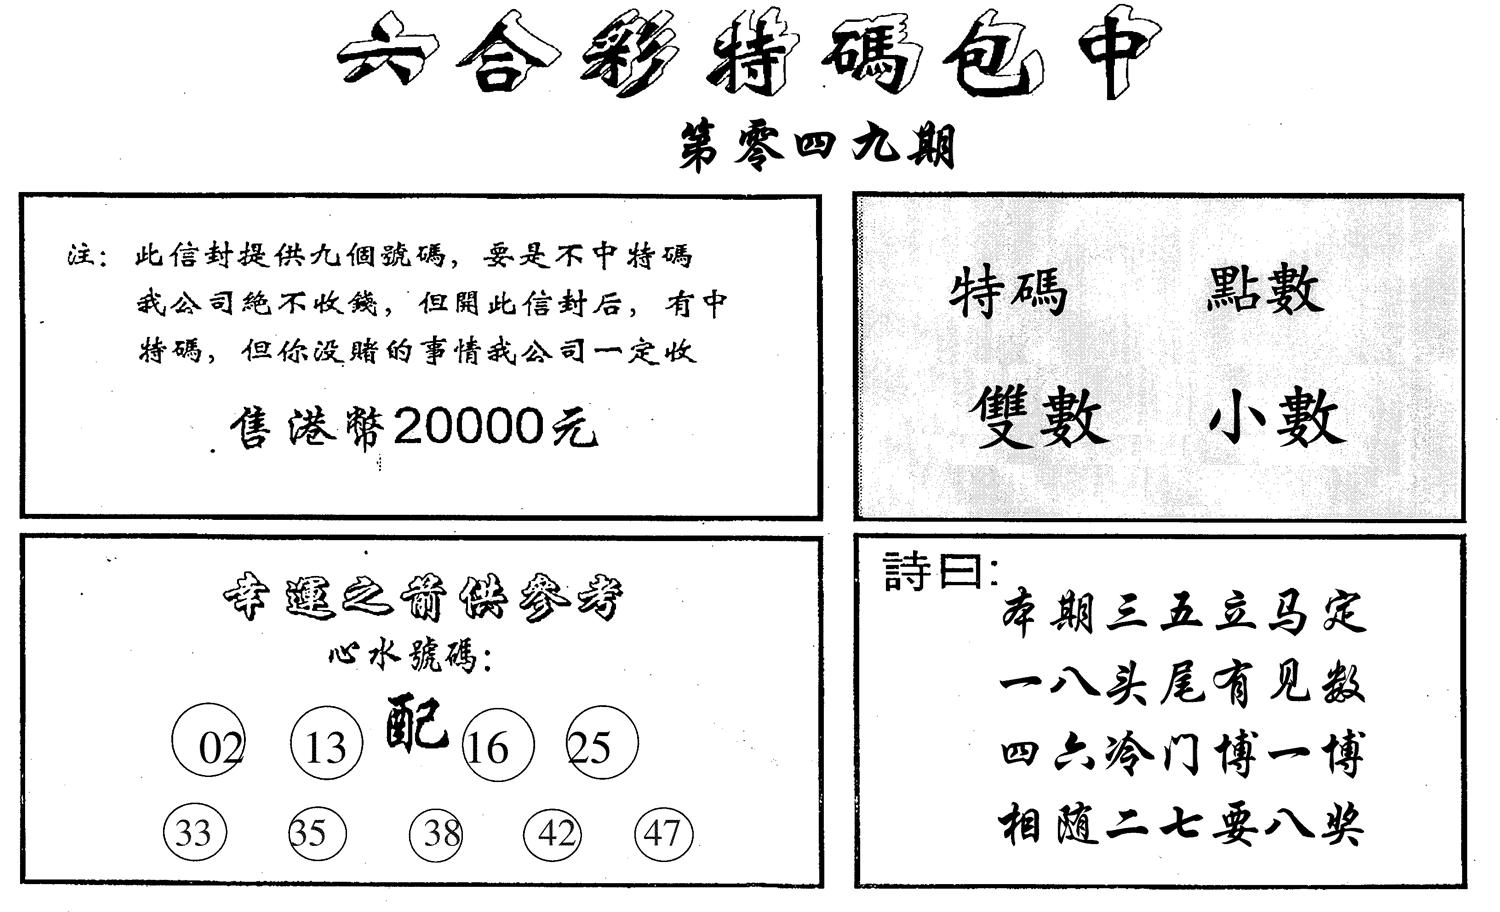 六合彩特碼包中
第零四九期
注：此信封提供九個號碼，要是不中特碼
我公司絕不收錢，但開此信封后，有中
特碼，但你没賭的事情我公司一定收
售港幣20000元
特碼 點數
雙數 小數
幸運之箭供參考
心水號碼：
02 13 配 16 25
33 35 38 42 47
詩曰：
本期三五立马定
一八头尾有见数
四六冷门博一博
相随二七要八奖